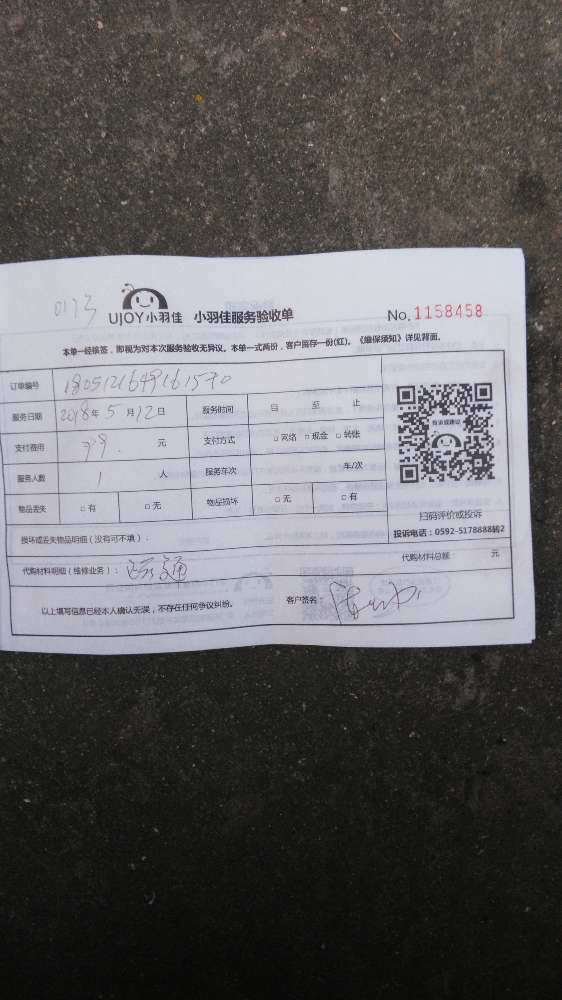 0173
UJOY小羽佳 小羽佳服务验收单 No.1158458
本单一经核签，即视为对本次服务验收无异议。本单一式两份，客户留存一份(红)。《维保须知》详见背面。
订单编号
服务日期 2018年5月12日 服务时间 自 至 止
支付费用 99. 元 支付方式 □网络 □现金 □转账
服务人数 1 人 服务车次 车/次
物品丢失 □有 □无 物品损坏 □无 □有
扫码评价或投诉
投诉电话：0592-5178888转2
损坏或丢失物品明细（没有可不填）：
代购材料明细（维修业务）： 代购材料总额 元
以上填写信息已经本人确认无误，不存在任何争议纠纷。 客户签名：